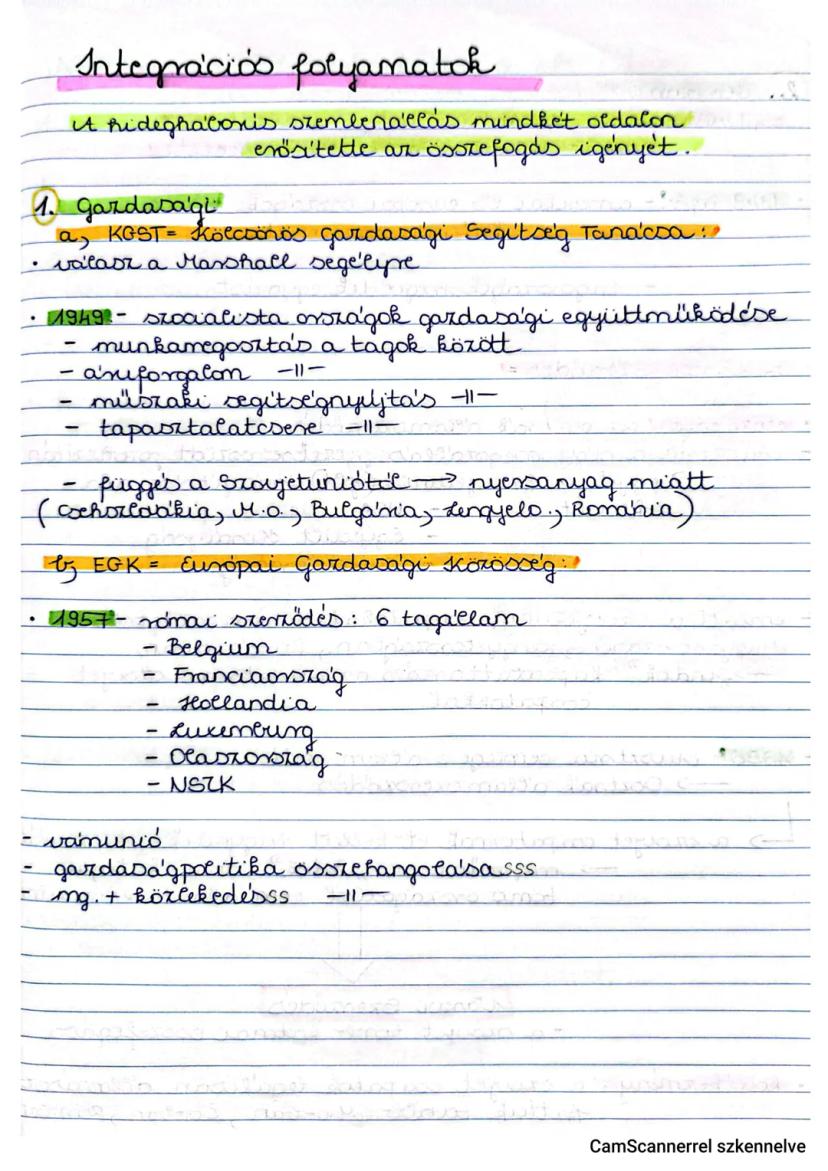 Integrációs folyamatok
A hidegháborús szembenállás mindkét oldalon
erősítette az összefogás igényét.
1. Gazdasági
a, KGST = Kölcsönös Gazdasági Segítség Tanácsa:
• válasz a Marshall segélyre
• 1949 - szocialista országok gazdasági együttműködése
- munkamegosztás a tagok között
- áruforgalom -||-
- műszaki segítségnyújtás -||-
- tapasztalatcsere -||-
- függés a Szovjetuniótól → nyersanyag miatt
(Csehszlovákia, M.o., Bulgária, Lengyelo., Románia)
b, EGK = Európai Gazdasági Közösség:
• 1957 - római szerződés: 6 tagállam
- Belgium
- Franciaország
- Hollandia
- Luxemburg
- Olaszország
- NSZK
- vámunió
- gazdaságpolitika összehangolása sss
- mg. + közlekedésss -||-
CamScannerrel szkennelve